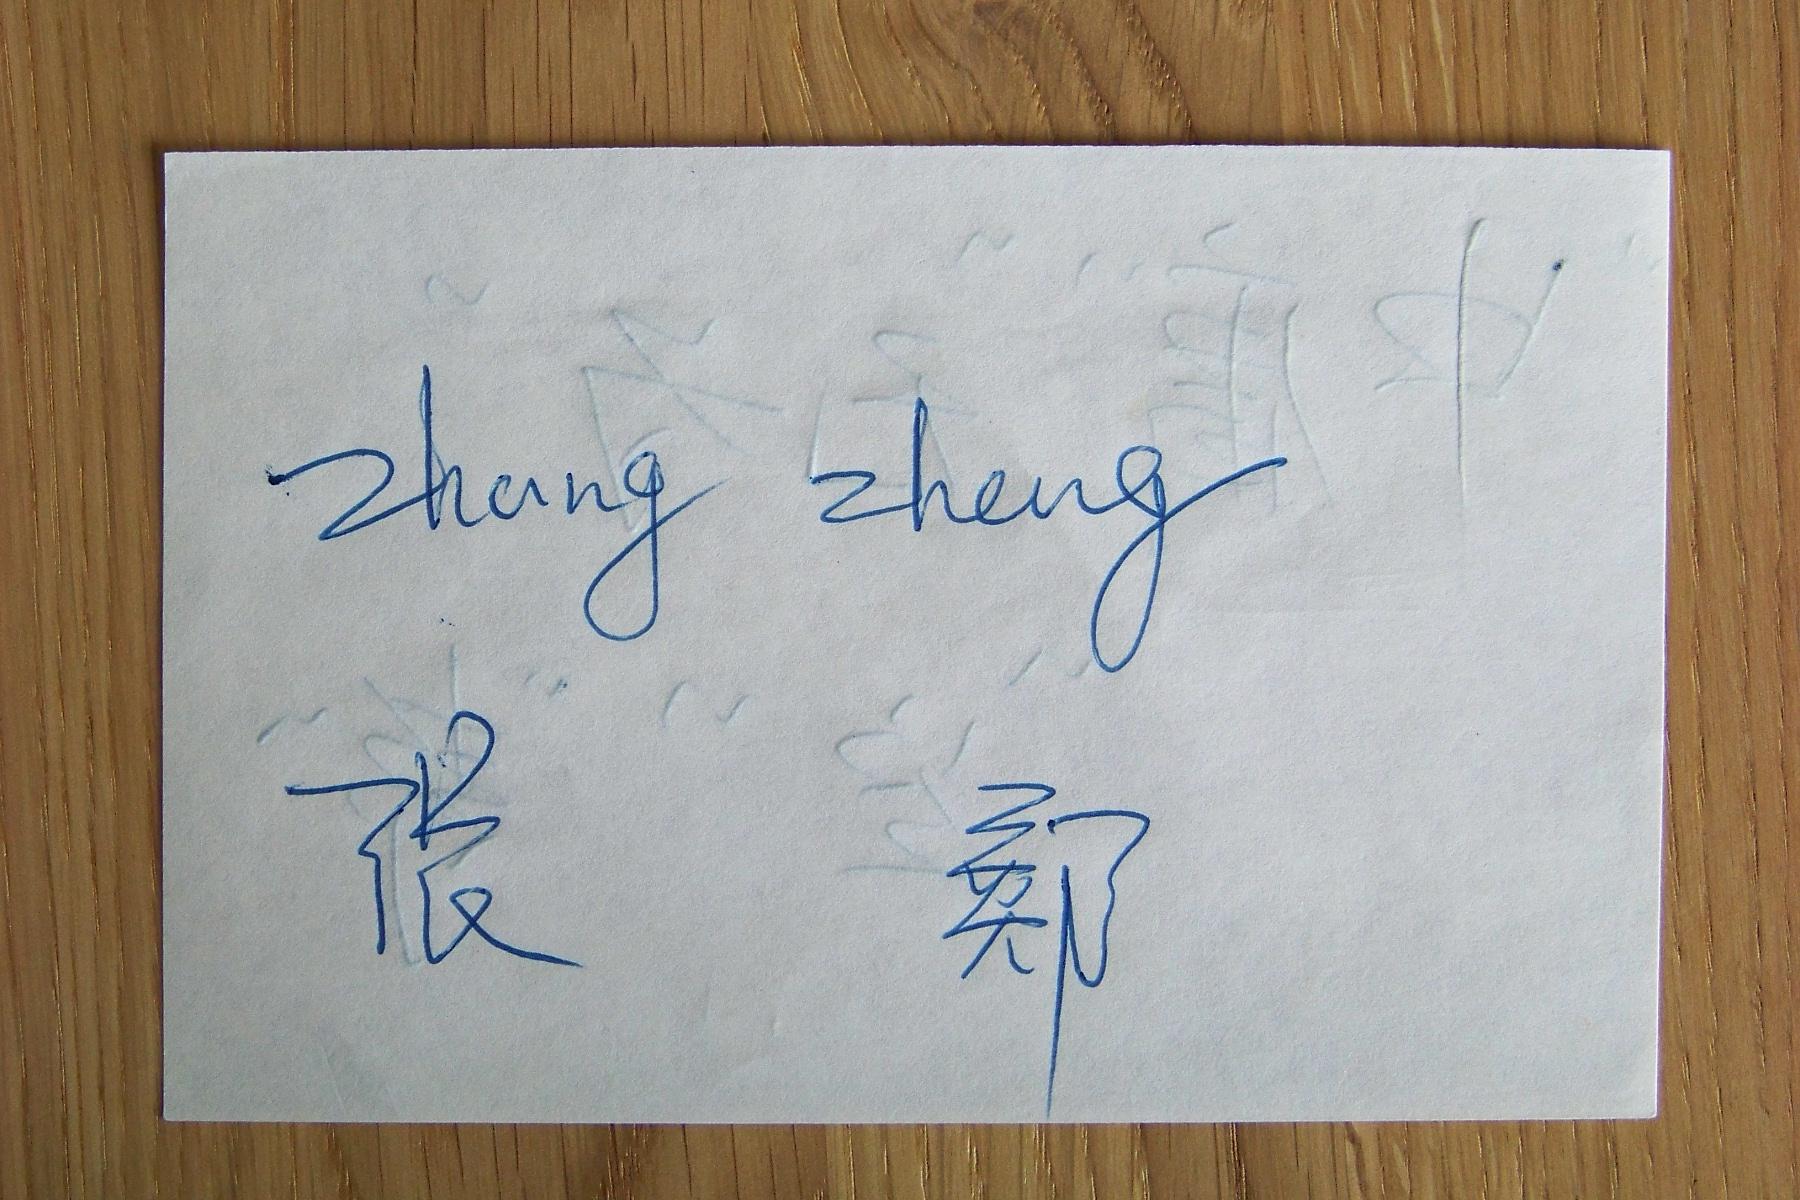 zhang zheng
张 郑